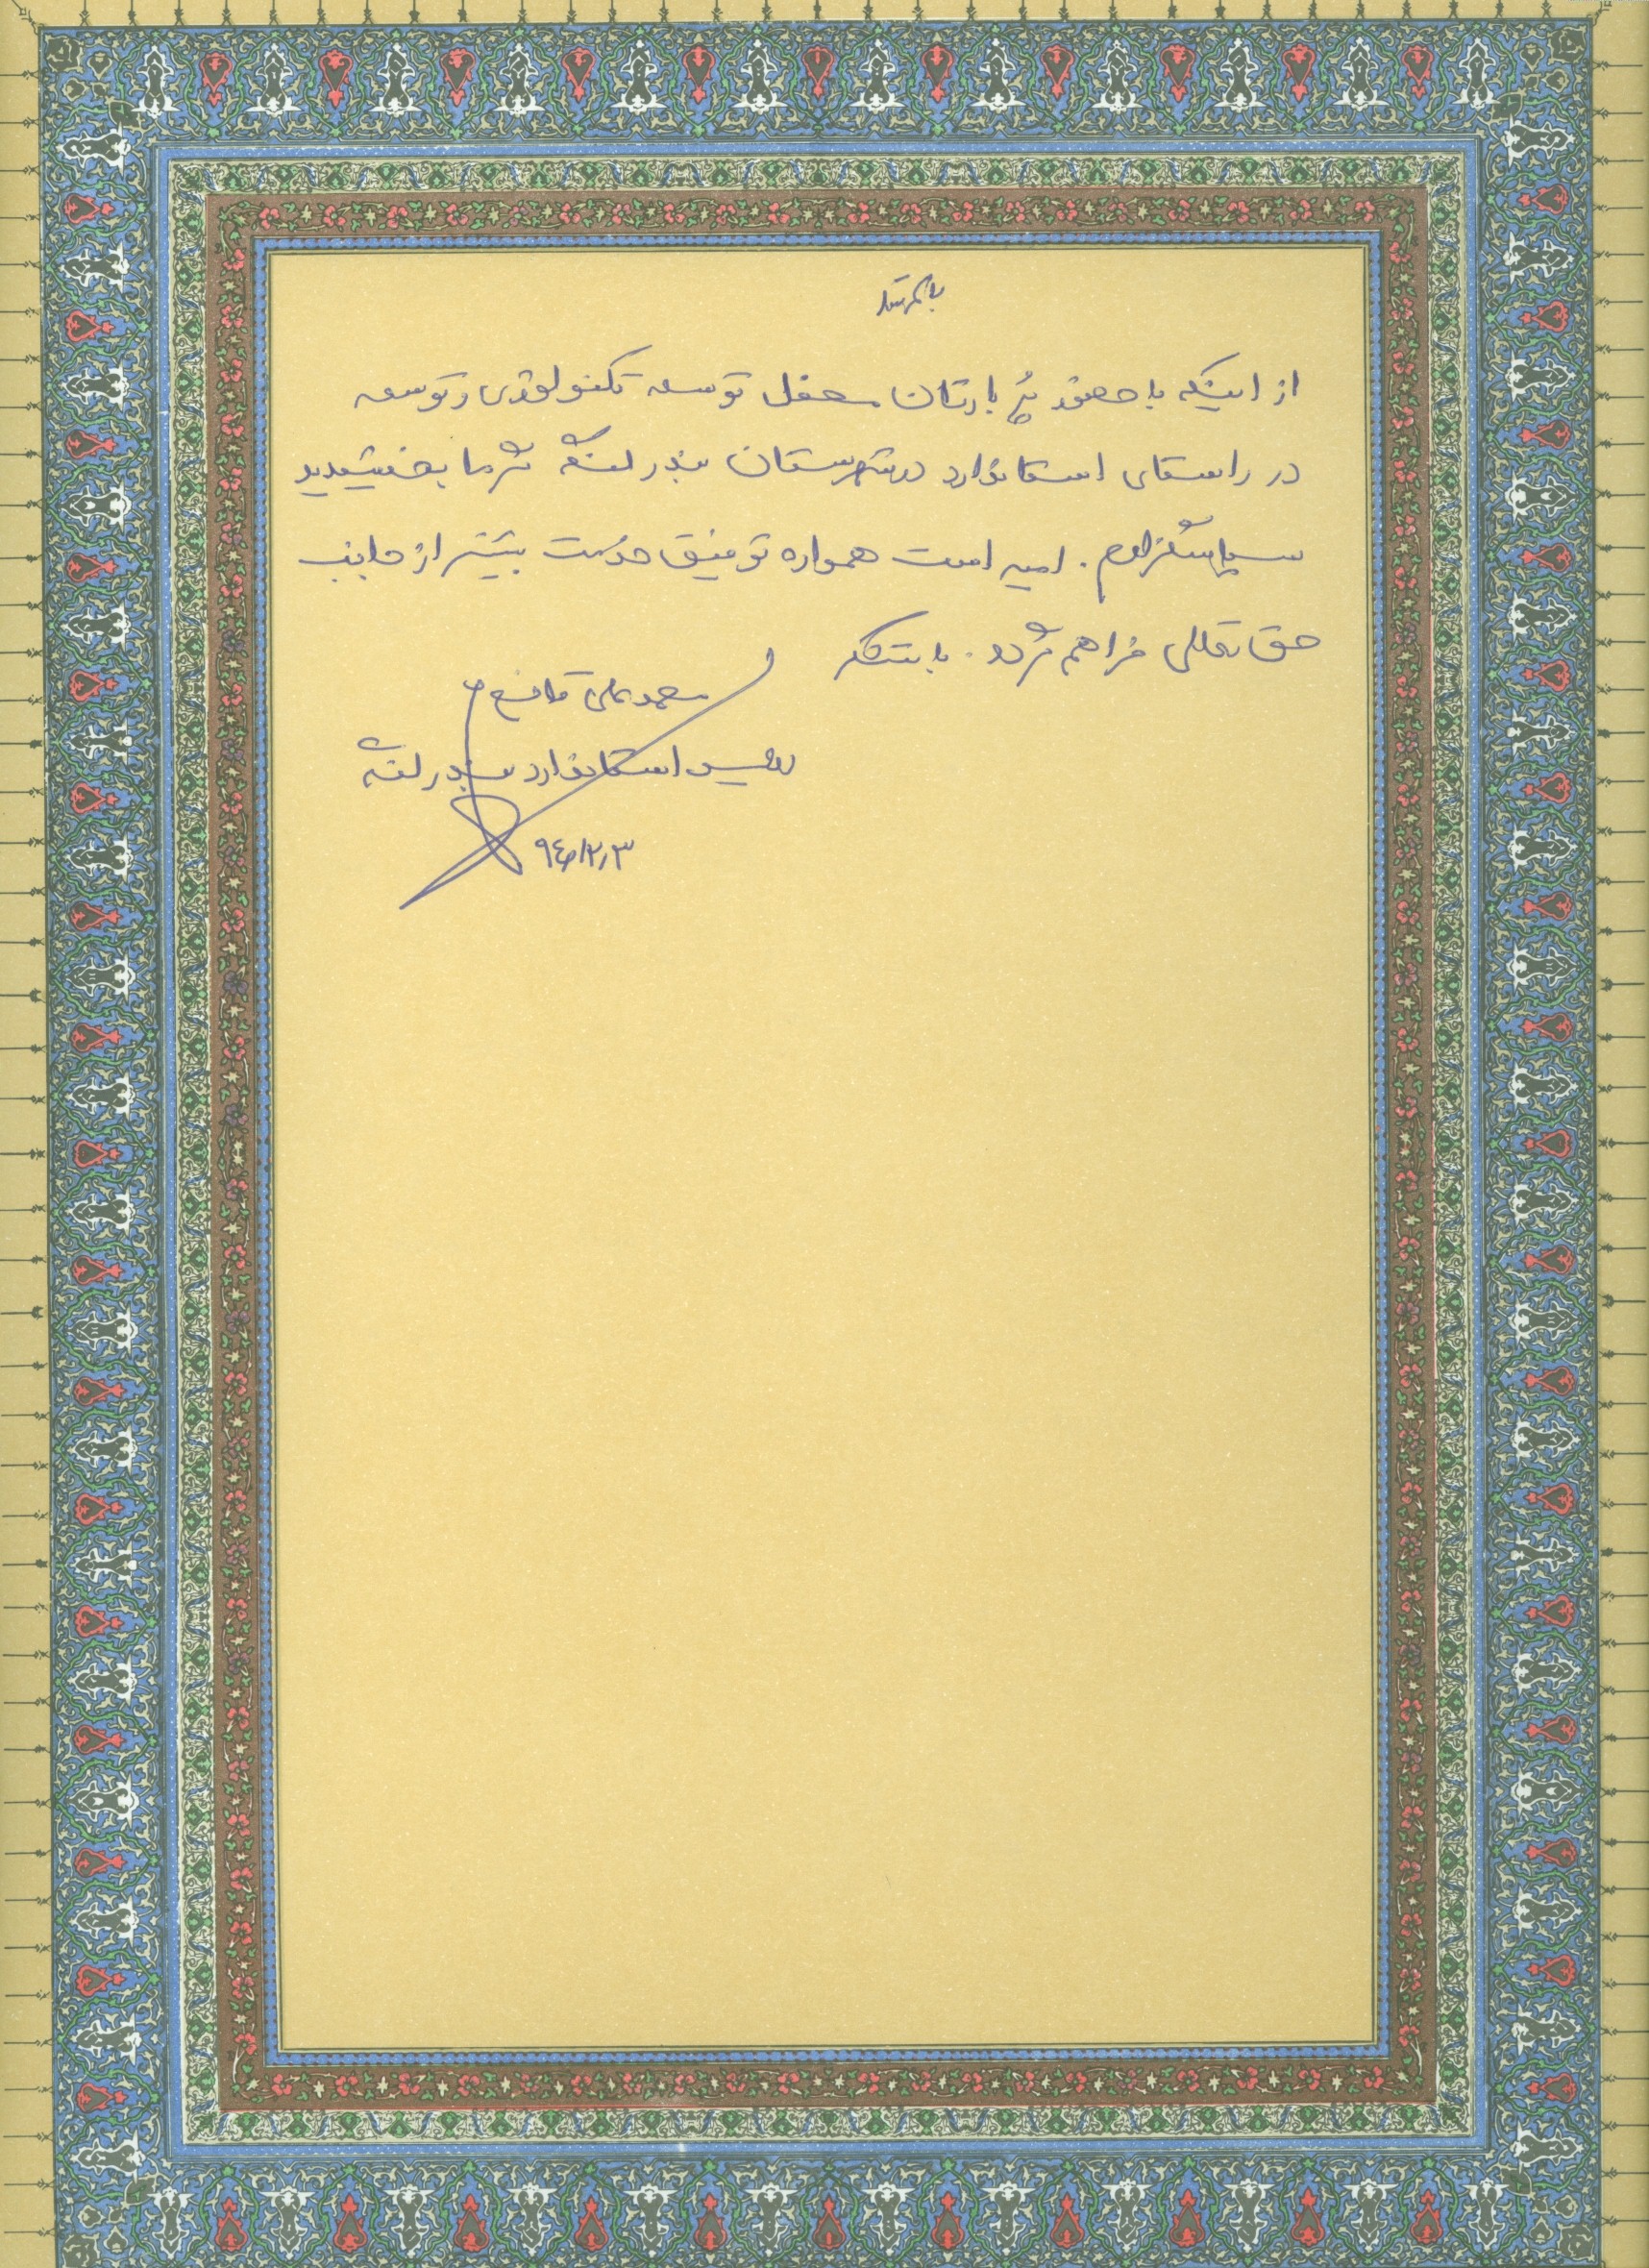 باسمه تعالی
از اینکه با حضور پر بارتان محفل توسعه تکنولوژی و توسعه
در راستای استاندارد در شهرستان بندر لنگه گرما بخشیدید
سپاسگزارم. امید است همواره توفیق خدمت بیشتر از جانب
حق تعالی فراهم گردد. با تشکر
محمد علی
رئیس استاندارد بندر لنگه